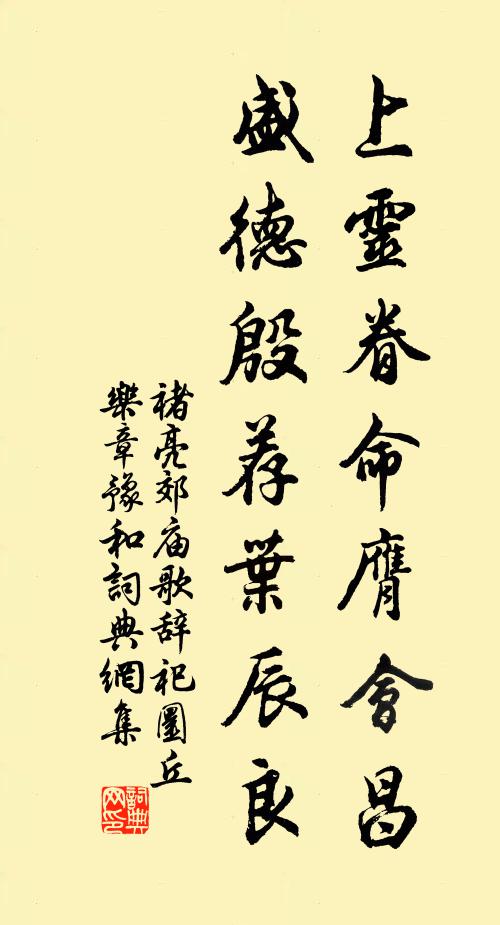 上靈眷命膺會昌
盛德殷荐葉辰良
褚亮郊庙歌辞祀圜丘
樂章豫和詞典網集
詞典
网印